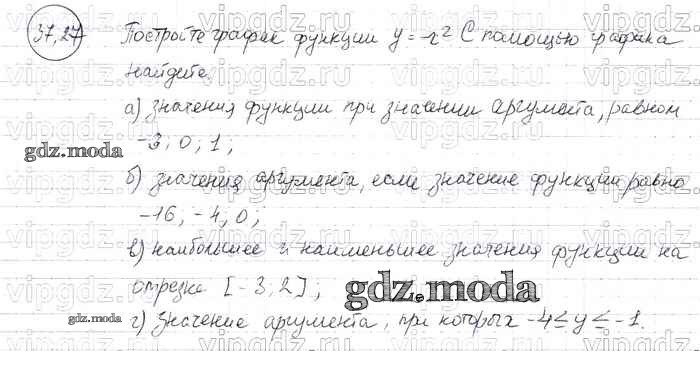 37.27 Постройте график функции y = -x² С помощью графика
найдите:
а) значения функции при значении аргумента, равном
-3; 0; 1;
gdz.moda
б) значения аргумента, если значение функции равно
-16; -4; 0;
в) наибольшее и наименьшее значения функции на
отрезке [-3; 2];
gdz.moda
gdz.moda
г) значение аргумента, при которых -4 ≤ y ≤ -1.